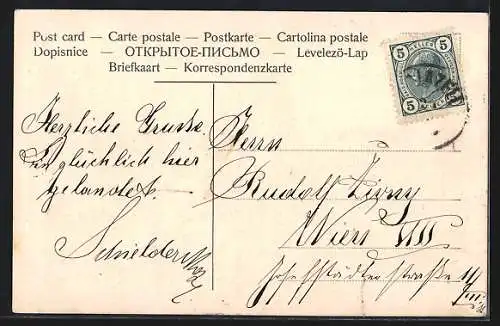 Post card — Carte postale — Postkarte — Cartolina postale
Dopisnice — ОТКРЫТОЕ-ПИСЬМО — Levelező-Lap
Briefkaart — Korrespondenzkarte
5 5
5 5
Herzliche Grüsse
glücklich hier
gelandet.
Herrn
Rudolf
Wien
Josefstädterstraße